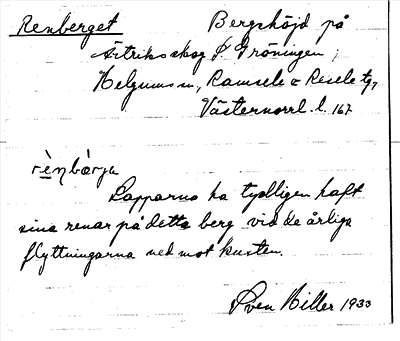 Renberget Bergshöjd på
Ärtriksskog o Gröningen;
Helgums sn, Ramsele o Resele tg,
Västernorrl. l. 167
Lapparna ha tydligen haft
sina renar på detta berg vid de årliga
flyttningarna ned mot kusten.
Sven Hiller 1933